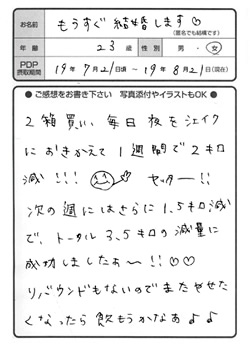 お名前 もうすぐ結婚します♡
(匿名でも結構です)
年齢 23歳 性別 男・女
PDP摂取期間 19年7月21日頃~19年8月21日(現在)
●ご感想をお書き下さい 写真添付やイラストもOK●
2箱買い、毎日夜をシェイク
におきかえて1週間で2キロ
減!!! ヤッター!!
次の週にはさらに1.5キロ減
で、トータル3.5キロの減量に
成功しましたぁ~!!♡♡
リバウンドもないのでまたやせた
くなったら飲もうかなぁ♪♪